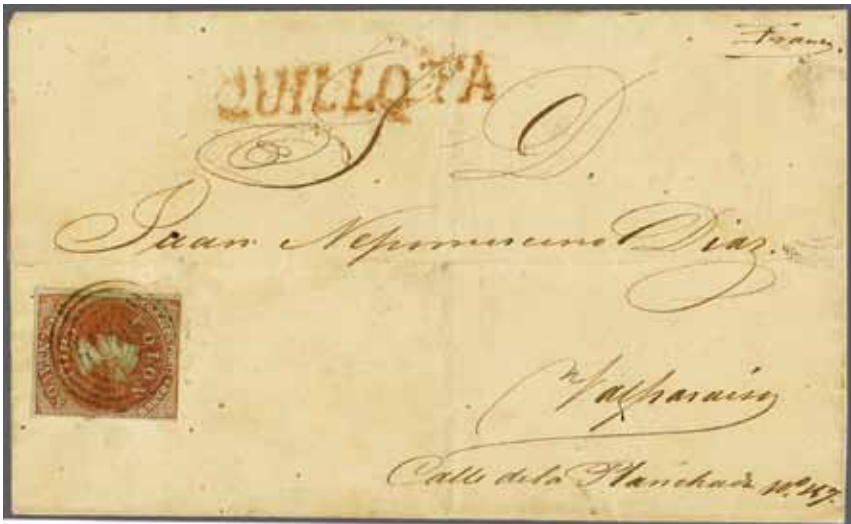 Franca.
QUILLOTA
S. D.
Juan Nepomuceno Diaz.
COLON
Valparaiso
Calle de la Planchada No. 157.